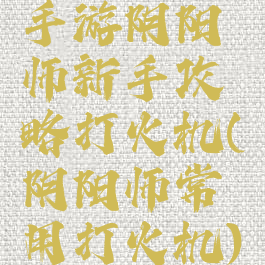 手游阴阳
师新手攻
略打火机(
阴阳师常
用打火机)